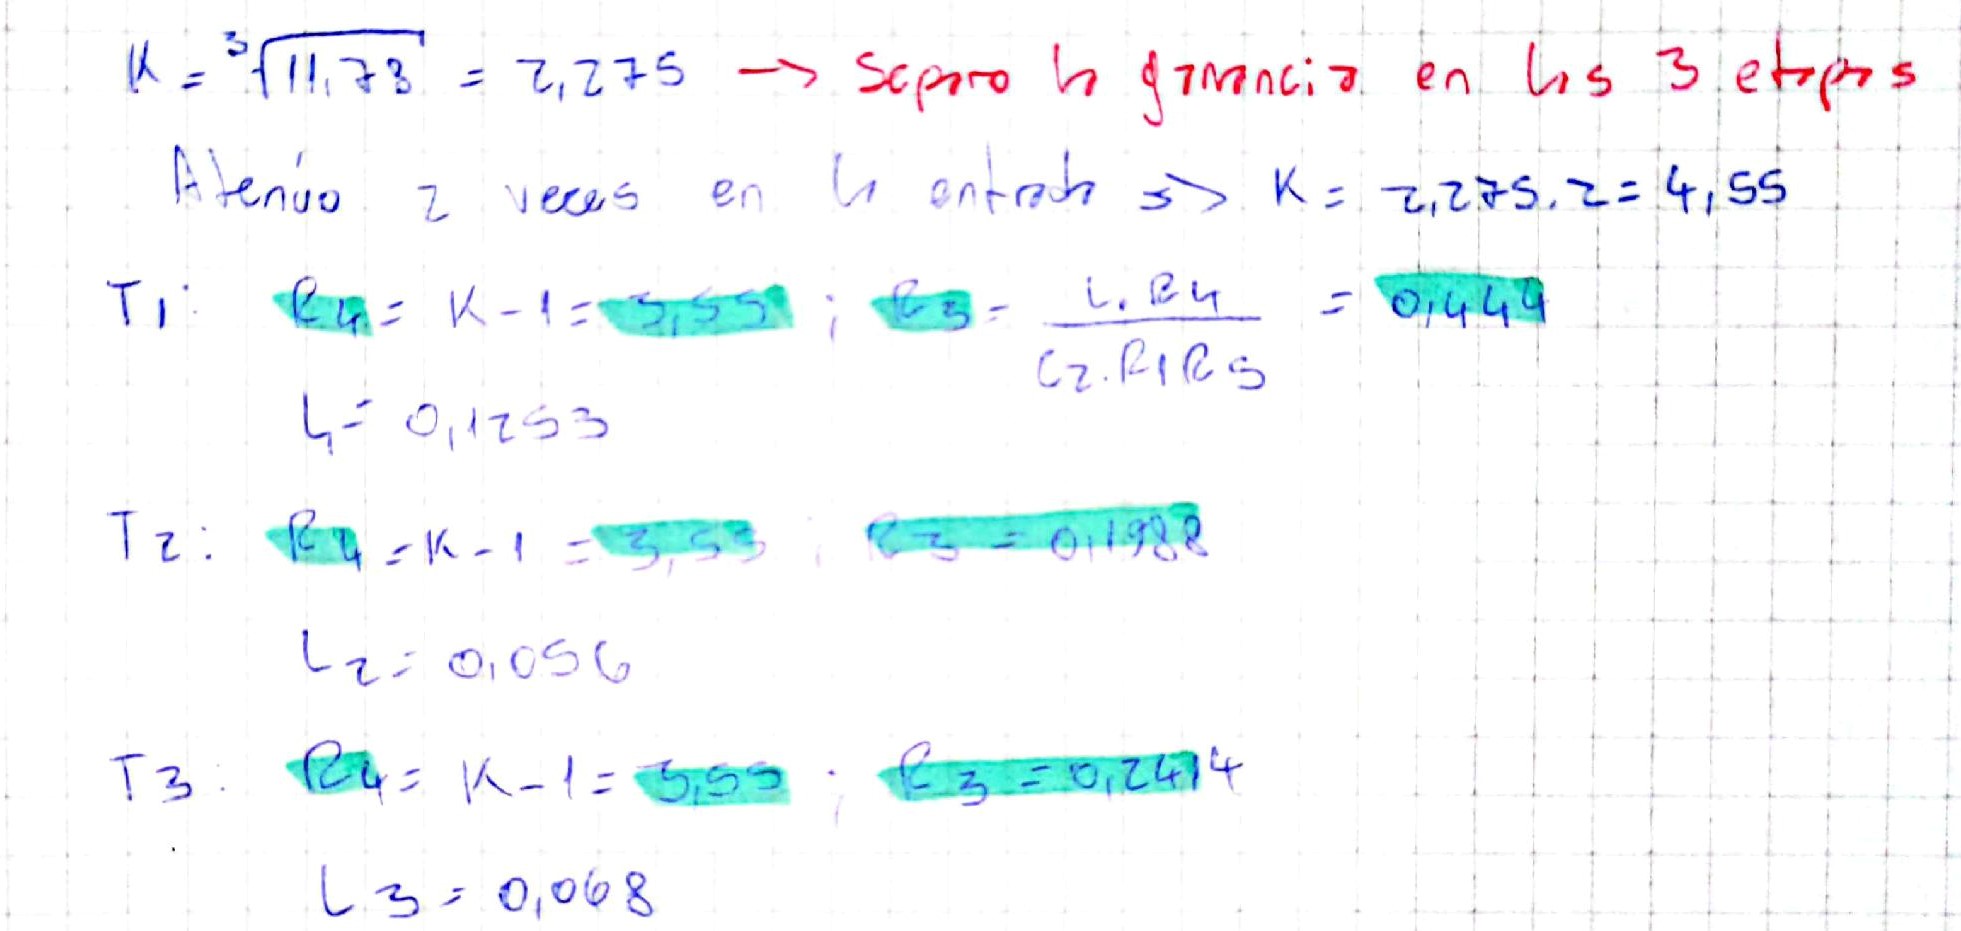 K = ³√11,78 = 2,275 → Separo la ganancia en las 3 etapas
Atenúo 2 veces en la entrada => K = 2,275.2 = 4,55
T1: R4 = K-1 = 3,55 ; R3 = L.R4 / C2.R1R5 = 0,444
L1 = 0,1253
T2: R4 = K-1 = 3,55 ; R3 = 0,1988
L2 = 0,056
T3: R4 = K-1 = 3,55 ; R3 = 0,2414
L3 = 0,068